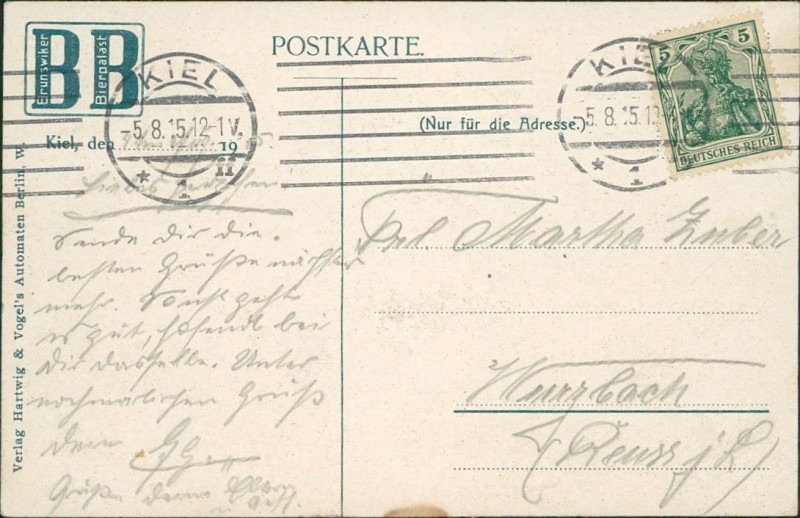 Brunswiker
Bierpalast
BB
POSTKARTE.
KIEL
5.8.15.12-1V.
* 1 n
KIEL
5.8.15.12
* 1
5 5
DEUTSCHES REICH
(Nur für die Adresse.)
Kiel, den 19
Verlag Hartwig & Vogel's Automaten Berlin. W.
Liebes
Sende Dir die
besten Grüße
mehr. Sonst geht
es gut, hoffendl bei
Dir dasselbe. Unter
nochmaligen Gruß
Dein
Grüße deine
Frl. Martha Zuber
Wurzbach
(Reuss j. L)